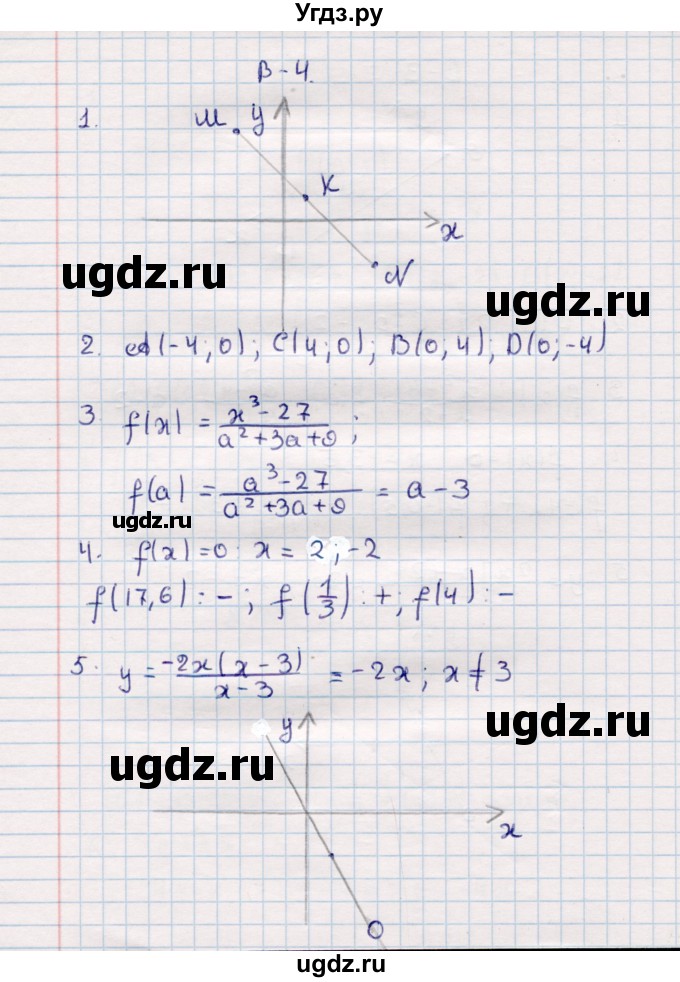 Угдз.ру
В-4.
1.
М
y
К
x
N
ugdz.ru
ugdz.ru
2. А(-4; 0); С(4; 0); В(0; 4); D(0; -4)
3. f(x) = (x³-27)/(a²+3a+9);
f(a) = (a³-27)/(a²+3a+9) = a-3
ugdz.ru
4. f(x)=0: x = 2; -2
f(17,6): -; f(1/3): +; f(4): -
5. y = (-2x(x-3))/(x-3) = -2x; x≠3
ugdz.ru
y
ugdz.ru
x
ugdz.ru